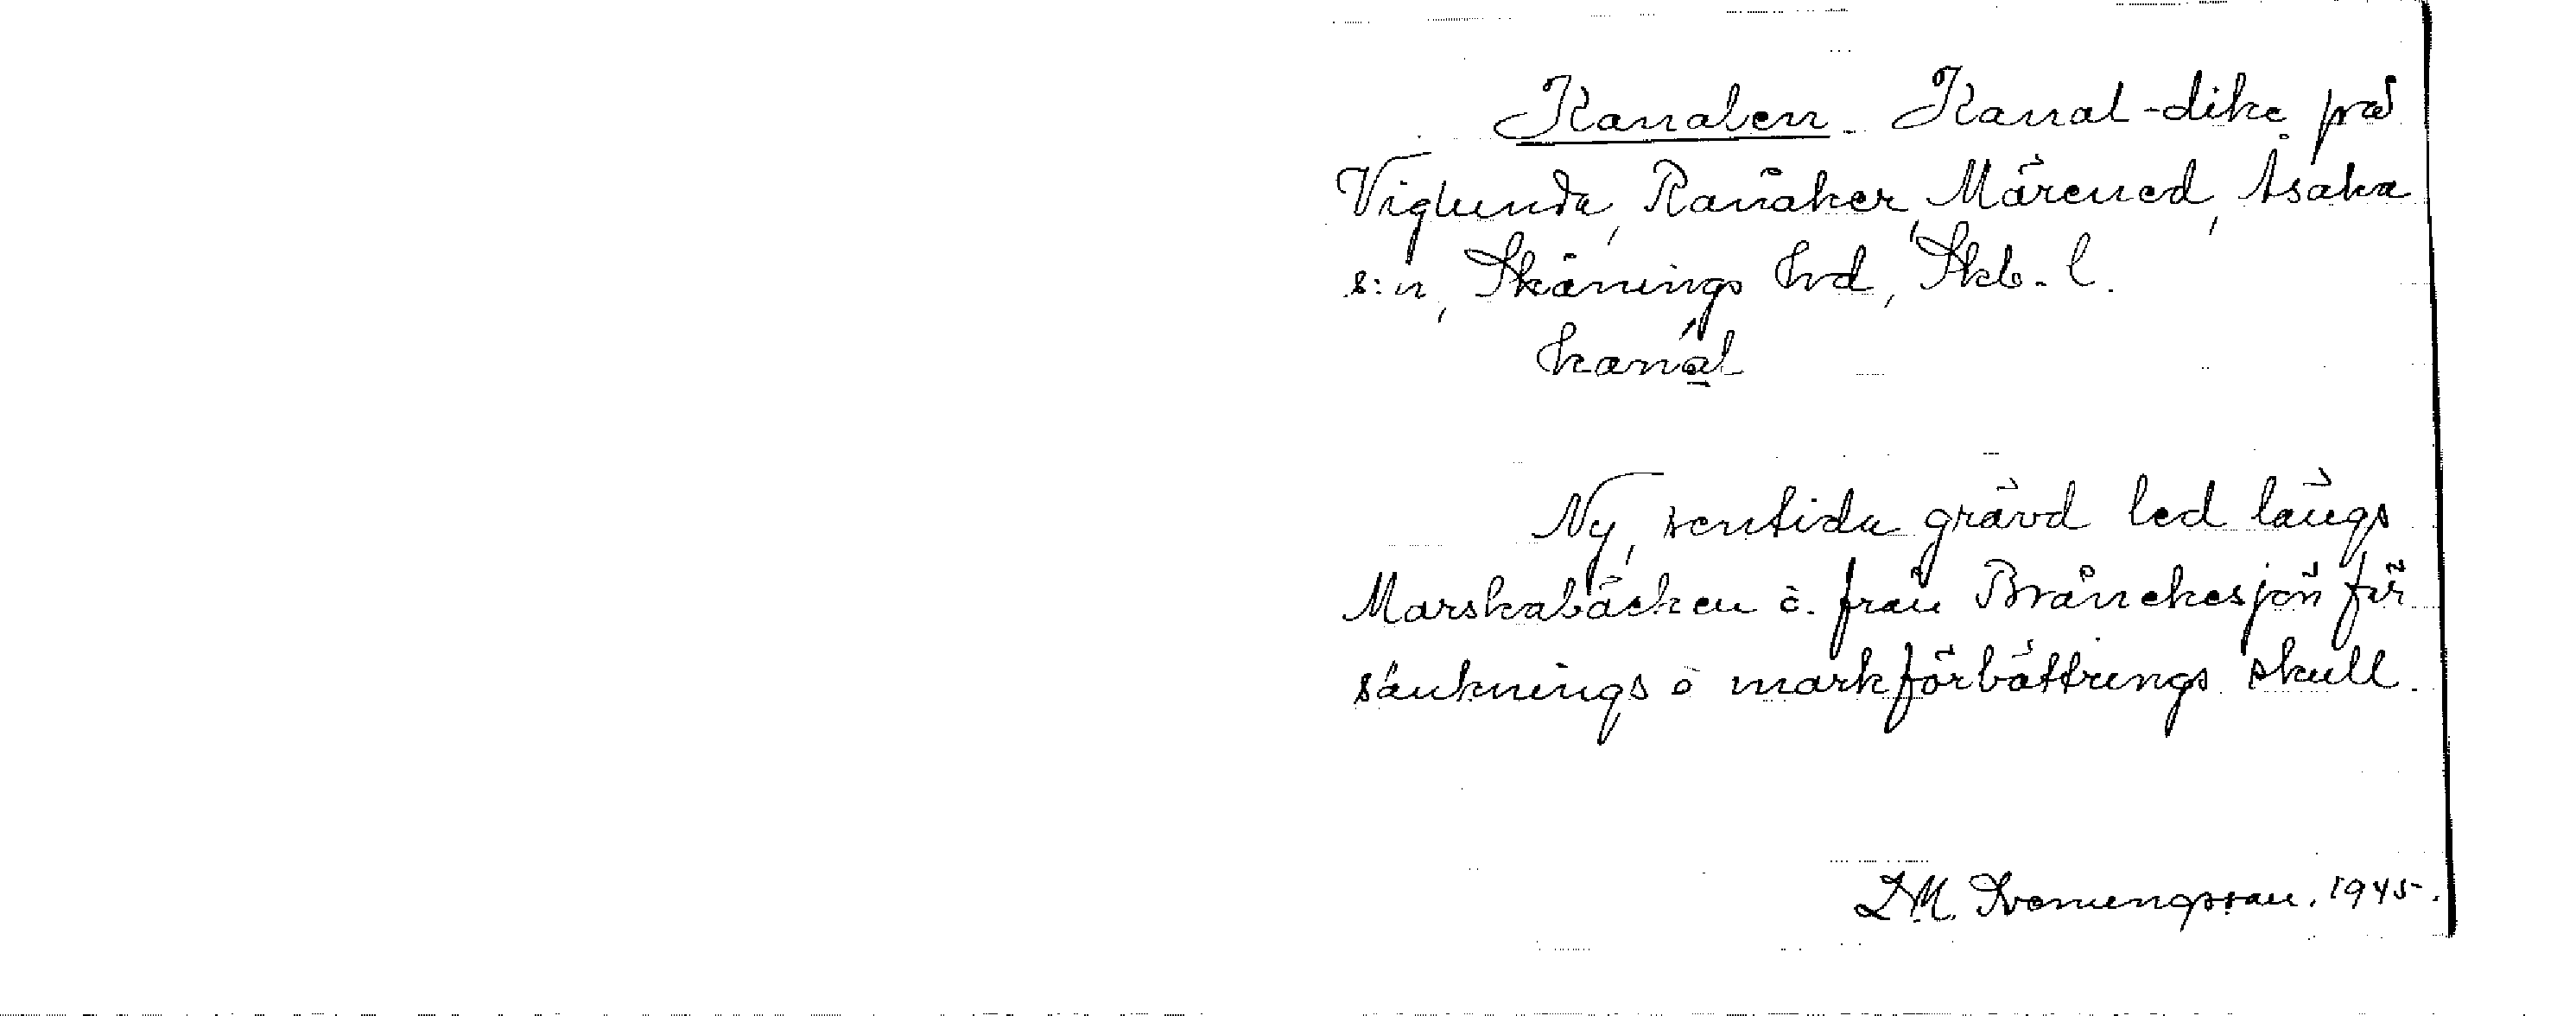 Kanalen. Kanal-dike på
Viglunda, Ranåker, Mårened, Åsaka
s:n, Skånings hrd, Skb. l.
kanal
Ny, sentida grävd led längs
Marskabäcken o. från Brånekesjön för
sänknings o markförbättrings skull.
L.M. Svenungsson. 1945.